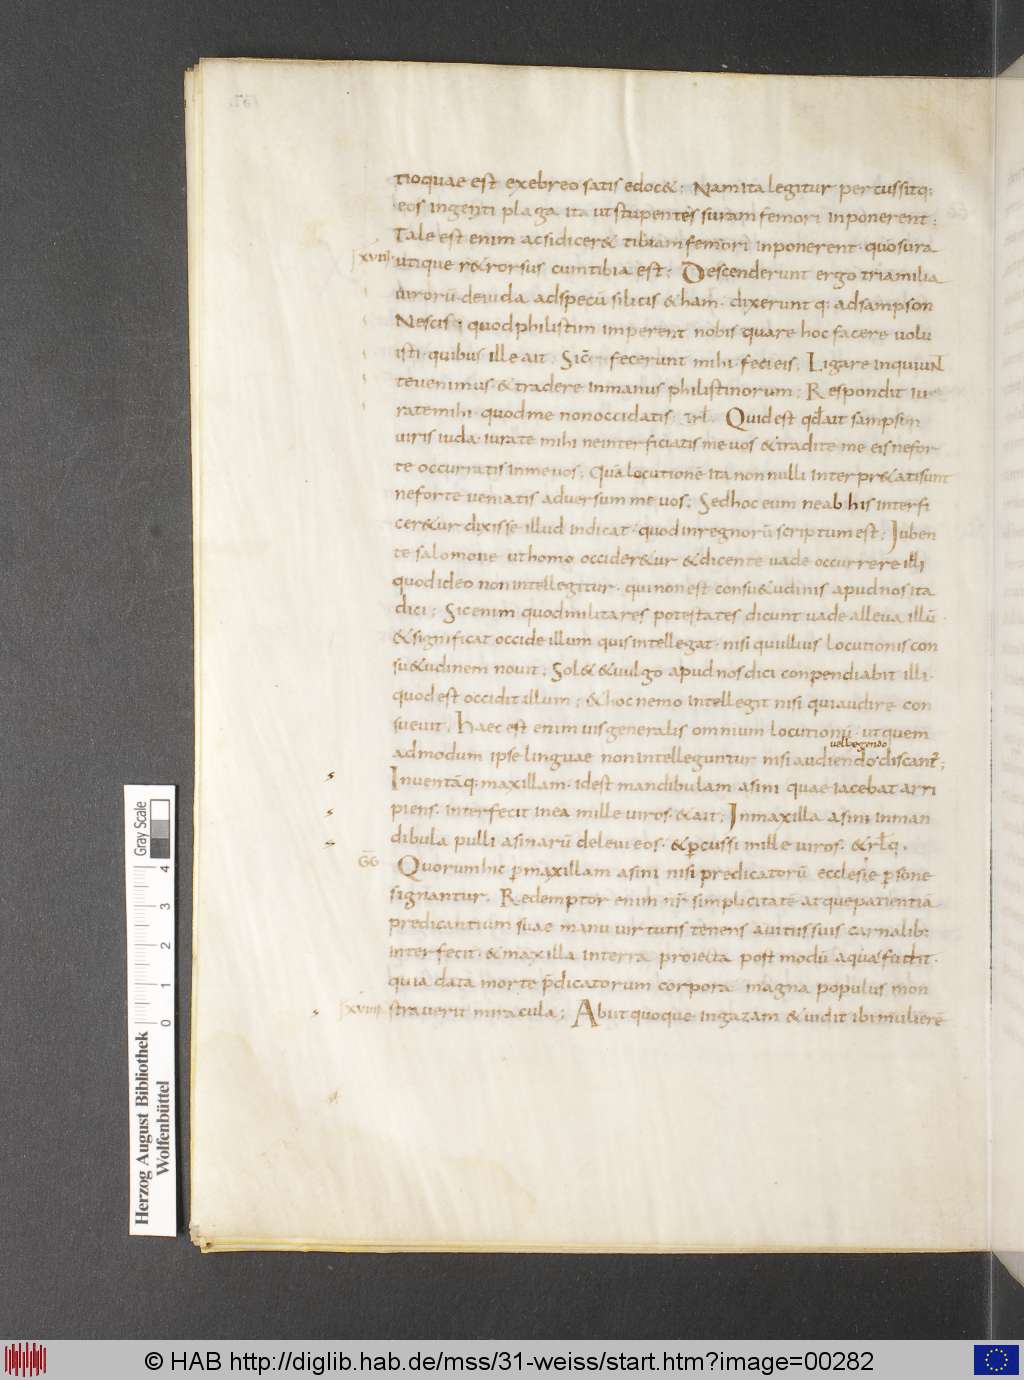 tioquae est exebreo satis edoc&; Nam ita legitur percussitq;
eos ingenti plaga ita ut stupentes suram femori inponerent;
Tale est enim acsi dicer& tibiam femori inponerent quo sura
xviii utique r&rorsus cum tibia est; Descenderunt ergo tria milia
uirorū de iuda ad specū silicis &ham. dixerunt q: ad sampson
Nescis; quod philistim imperent nobis quare hoc facere uolu
isti. quibus ille ait. Sic̄ fecerunt mihi. feci eis. Ligare inquiunt
te uenimus & tradere in manus philistinorum; Respondit iu
rate mihi. quod me non occidatis. &rl. Quid est qđ ait sampson
uiris iuda. iurate mihi ne interficiatis me uos & tradite me eis ne for
te occurratis in me uos; Quā locutionē ita non nulli interpr&ati sunt
ne forte ueniatis aduersum me uos; Sed hoc eum ne ab his interfi
cer&ur dixisse illud indicat. quod in regnorū scriptum est; Iuben
te salomone ut homo occider&ur & dicente uade occurrere illi
quod ideo non intellegitur. qui non est consu&udinis apud nos ita
dici; Sic enim quod militares potestates dicunt uade alleua illū.
& significat occide illum quis intellegat. nisi qui illius locutionis con
su&udinem nouit; Sol& & uulgo apud nos dici conpendiabit illi.
quod est occidit illum; & hoc nemo intellegit nisi qui audire con
sueuit. Haec est enim uis generalis omnium locutionū. ut quem
uel legendo
admodum ipse linguae non intelleguntur nisi audiendo discant̄;
Inuentāq; maxillam. id est mandibulam asini quae iacebat arri
piens. interfecit in ea mille uiros. & ait; In maxilla asini in man
dibula pulli asinarū deleui eos. & p̄cussi mille uiros. & rl̄q.
GG Quorum hic p̄ maxillam asini nisi predicatorū ecclesie p̄sone
signantur. Redemptor enim nr̄ simplicitatē atque patientiā
predicantium suae manu uirtutis tenens a uitiis suis carnalib;
interfecit. & maxilla in terra proiecta post modū aquā fudit.
quia data morte p̄dicatorum corpora magna populus mon
xviiii strauerit miracula; Abiit quoque in gazam & uidit ibi mulierē
Herzog August Bibliothek
Wolfenbüttel
0 1 2 3 4
Gray Scale
© HAB http://diglib.hab.de/mss/31-weiss/start.htm?image=00282